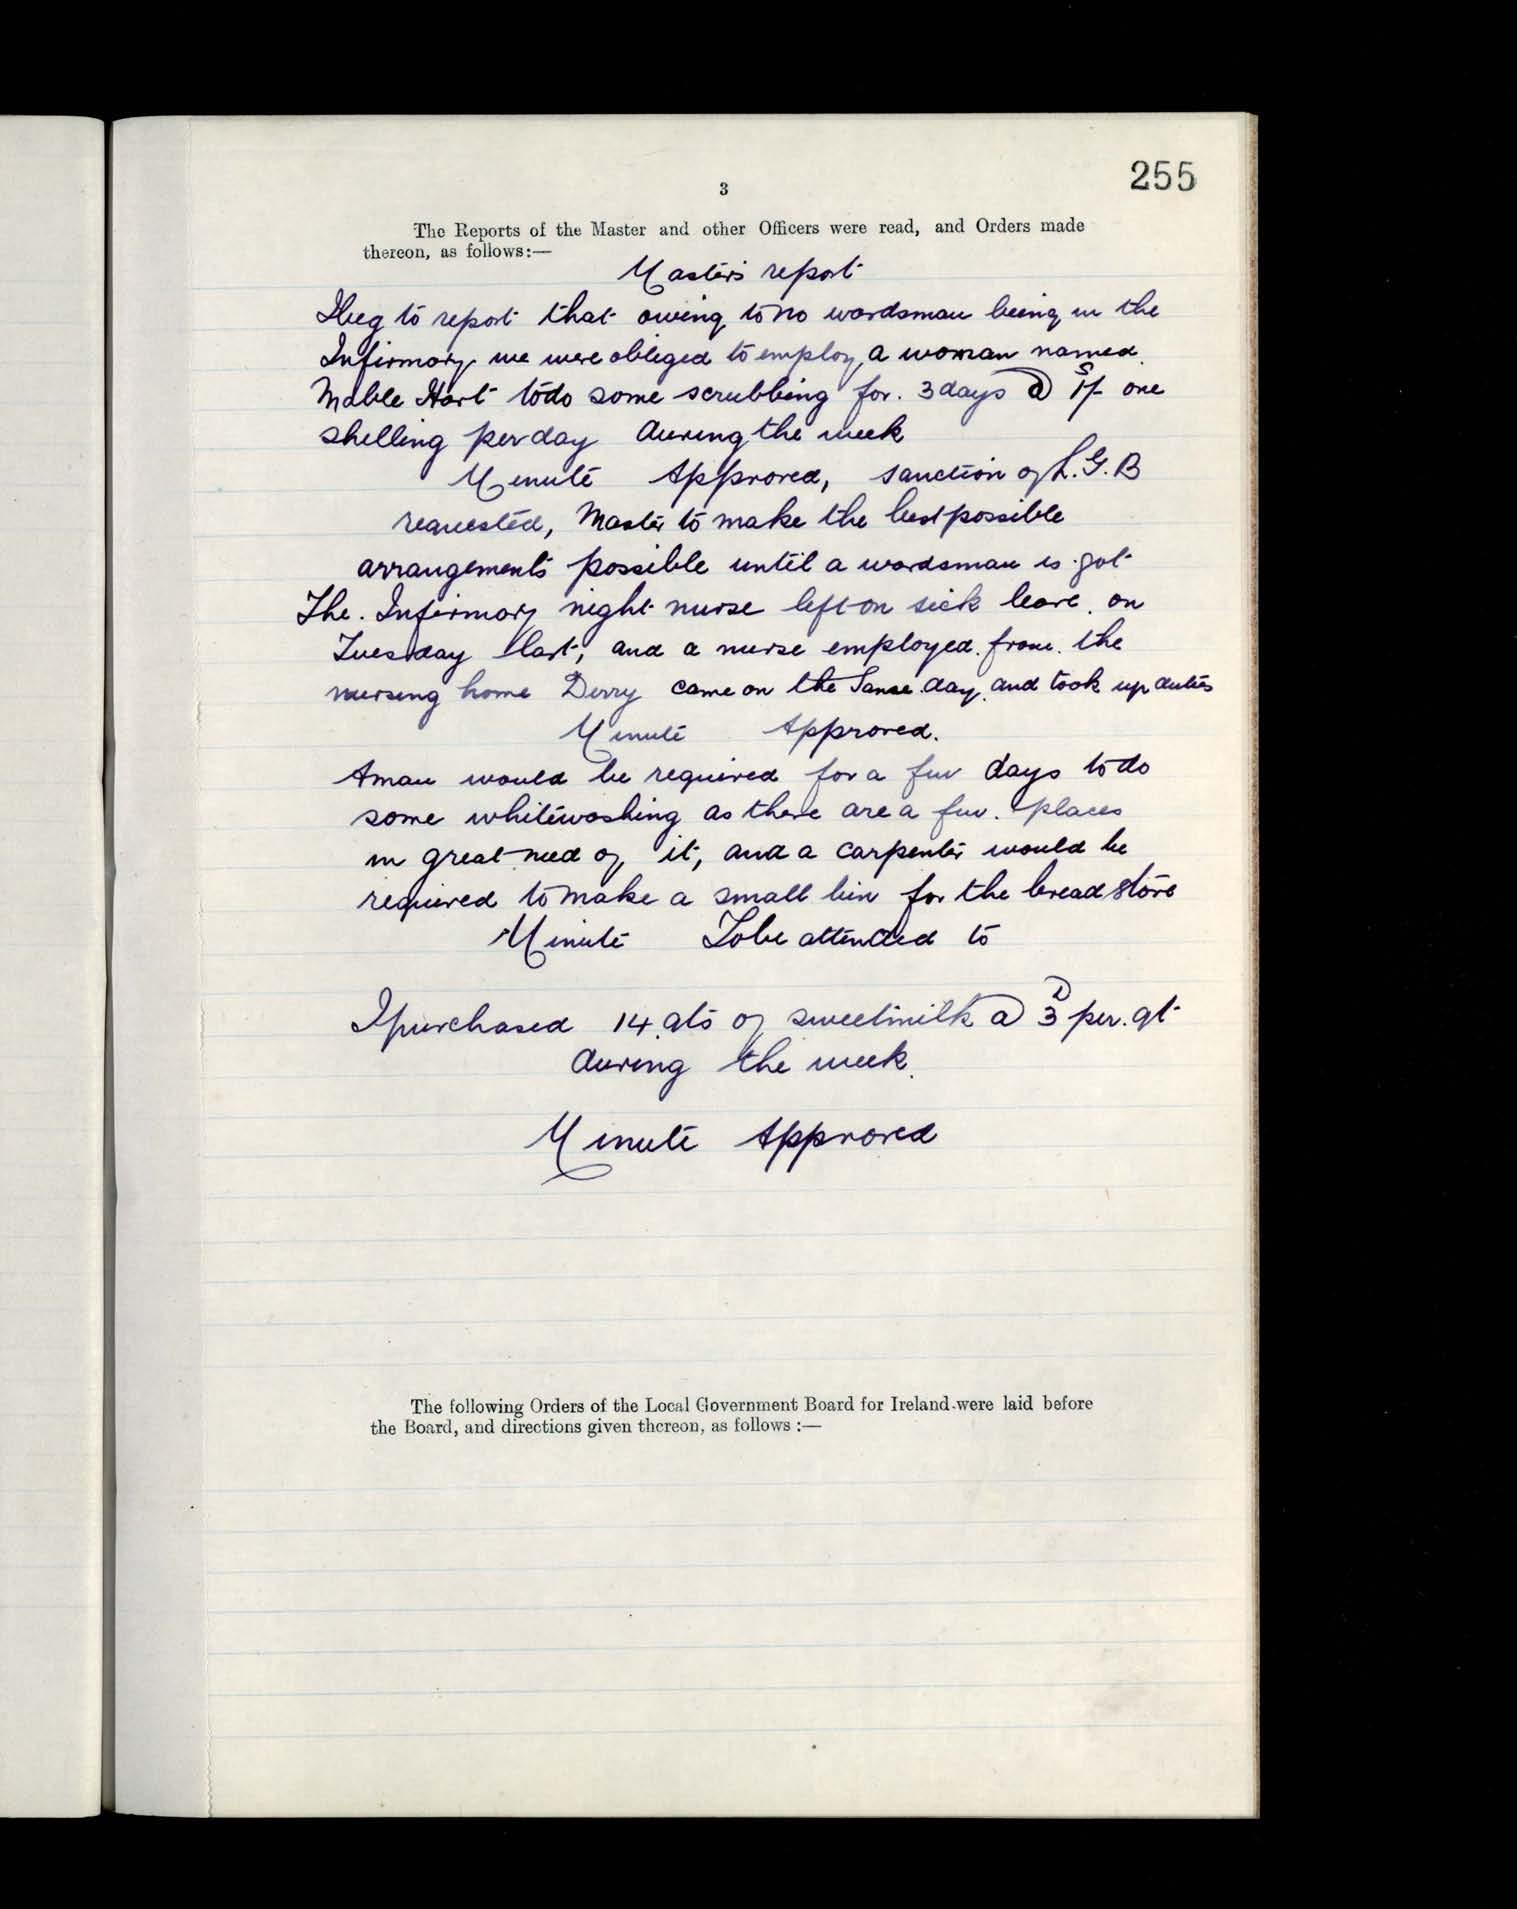 255
3
The Reports of the Master and other Officers were read, and Orders made
thereon, as follows:—
Master's report
I beg to report that owing to no wardsman being in the
Infirmary we were obliged to employ a woman named
Mable Hart to do some scrubbing for. 3 days @ 1s/- one
shilling per day during the week
Minute Approved, sanction of L.G.B
requested, Master to make the best possible
arrangements possible until a wardsman is got
The Infirmary night nurse left on sick leave on
Tuesday last, and a nurse employed from the
nursing home Derry came on the same day and took up duties
Minute Approved.
A man would be required for a few days to do
some whitewashing as there are a few places
in great need of it, and a carpenter would be
required to make a small bin for the bread store
Minute To be attended to
I purchased 14 qts of sweetmilk @ 3D per qt
during the week.
Minute Approved
The following Orders of the Local Government Board for Ireland were laid before
the Board, and directions given thereon, as follows :—